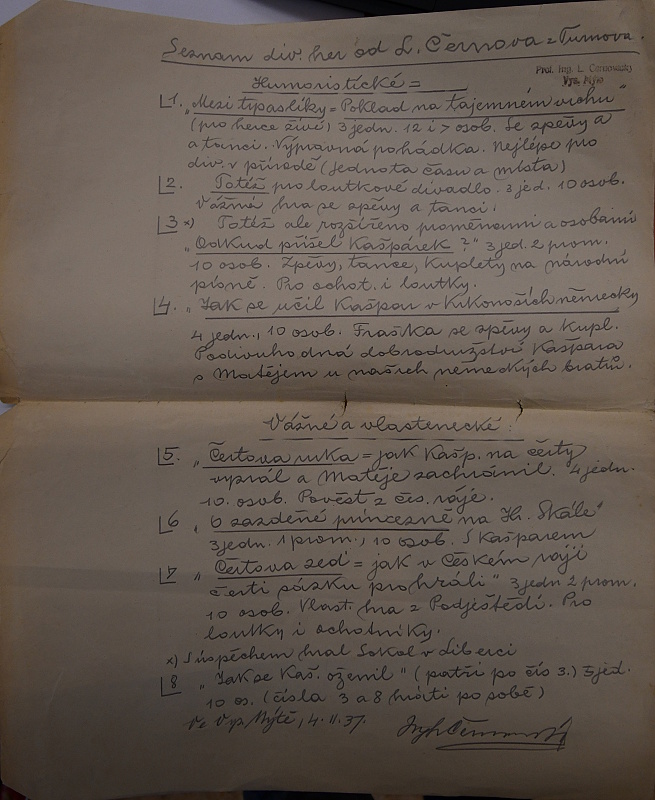 Seznam div. her od L. Černova z Turnova.
Prof. Ing. L. Černovický
Vys. Mýto
Humoristické =
1. „Mezi trpaslíky = Poklad na tajemném vrchu"
(pro herce živé) 3 jedn. 12 i > osob. Se zpěvy a
a tanci. Výpravná pohádka. Nejlépe pro
div. v přírodě (jednota času a místa)
2. Totéž pro loutkové divadlo. 3 jed. 10 osob.
Vážná hra se zpěvy a tanci.
3 x) Totéž ale rozšířeno proměnami a osobami
„Odkud přišel Kašpárek?" 3 jed. 2 prom.
10 osob. Zpěvy, tance, kuplety na národní
písně. Pro ochot. i loutky.
4. „Jak se učil Kašpar v Krkonoších německy
4 jedn., 10 osob. Fraška se zpěvy a kupl.
Podivuhodná dobrodružství Kašpara
s Matějem u našich německých bratrů.
Vážné a vlastenecké:
5. „Čertova ruka = jak Kašp. na čerty
vyzrál a Matěje zachránil. 4 jedn.
10. osob. Pověst z čes. ráje.
6 „O zazděné princezně na Hr. Skále"
3 jedn. 1 prom., 10 osob. S Kašparem
7 „Čertova zeď = jak v Českém ráji
čerti sázku prohráli" 3 jedn 2 prom.
10 osob. Vlast. hra z Podještědí. Pro
loutky i ochotníky.
x) S úspěchem hrál Sokol v Liberci
8 „Jak se Kaš. oženil" (patří po čís 3.) 3 jed.
10 os. (čísla 3 a 8 hráti po sobě)
Ve Vys. Mýtě, 4. II. 37.